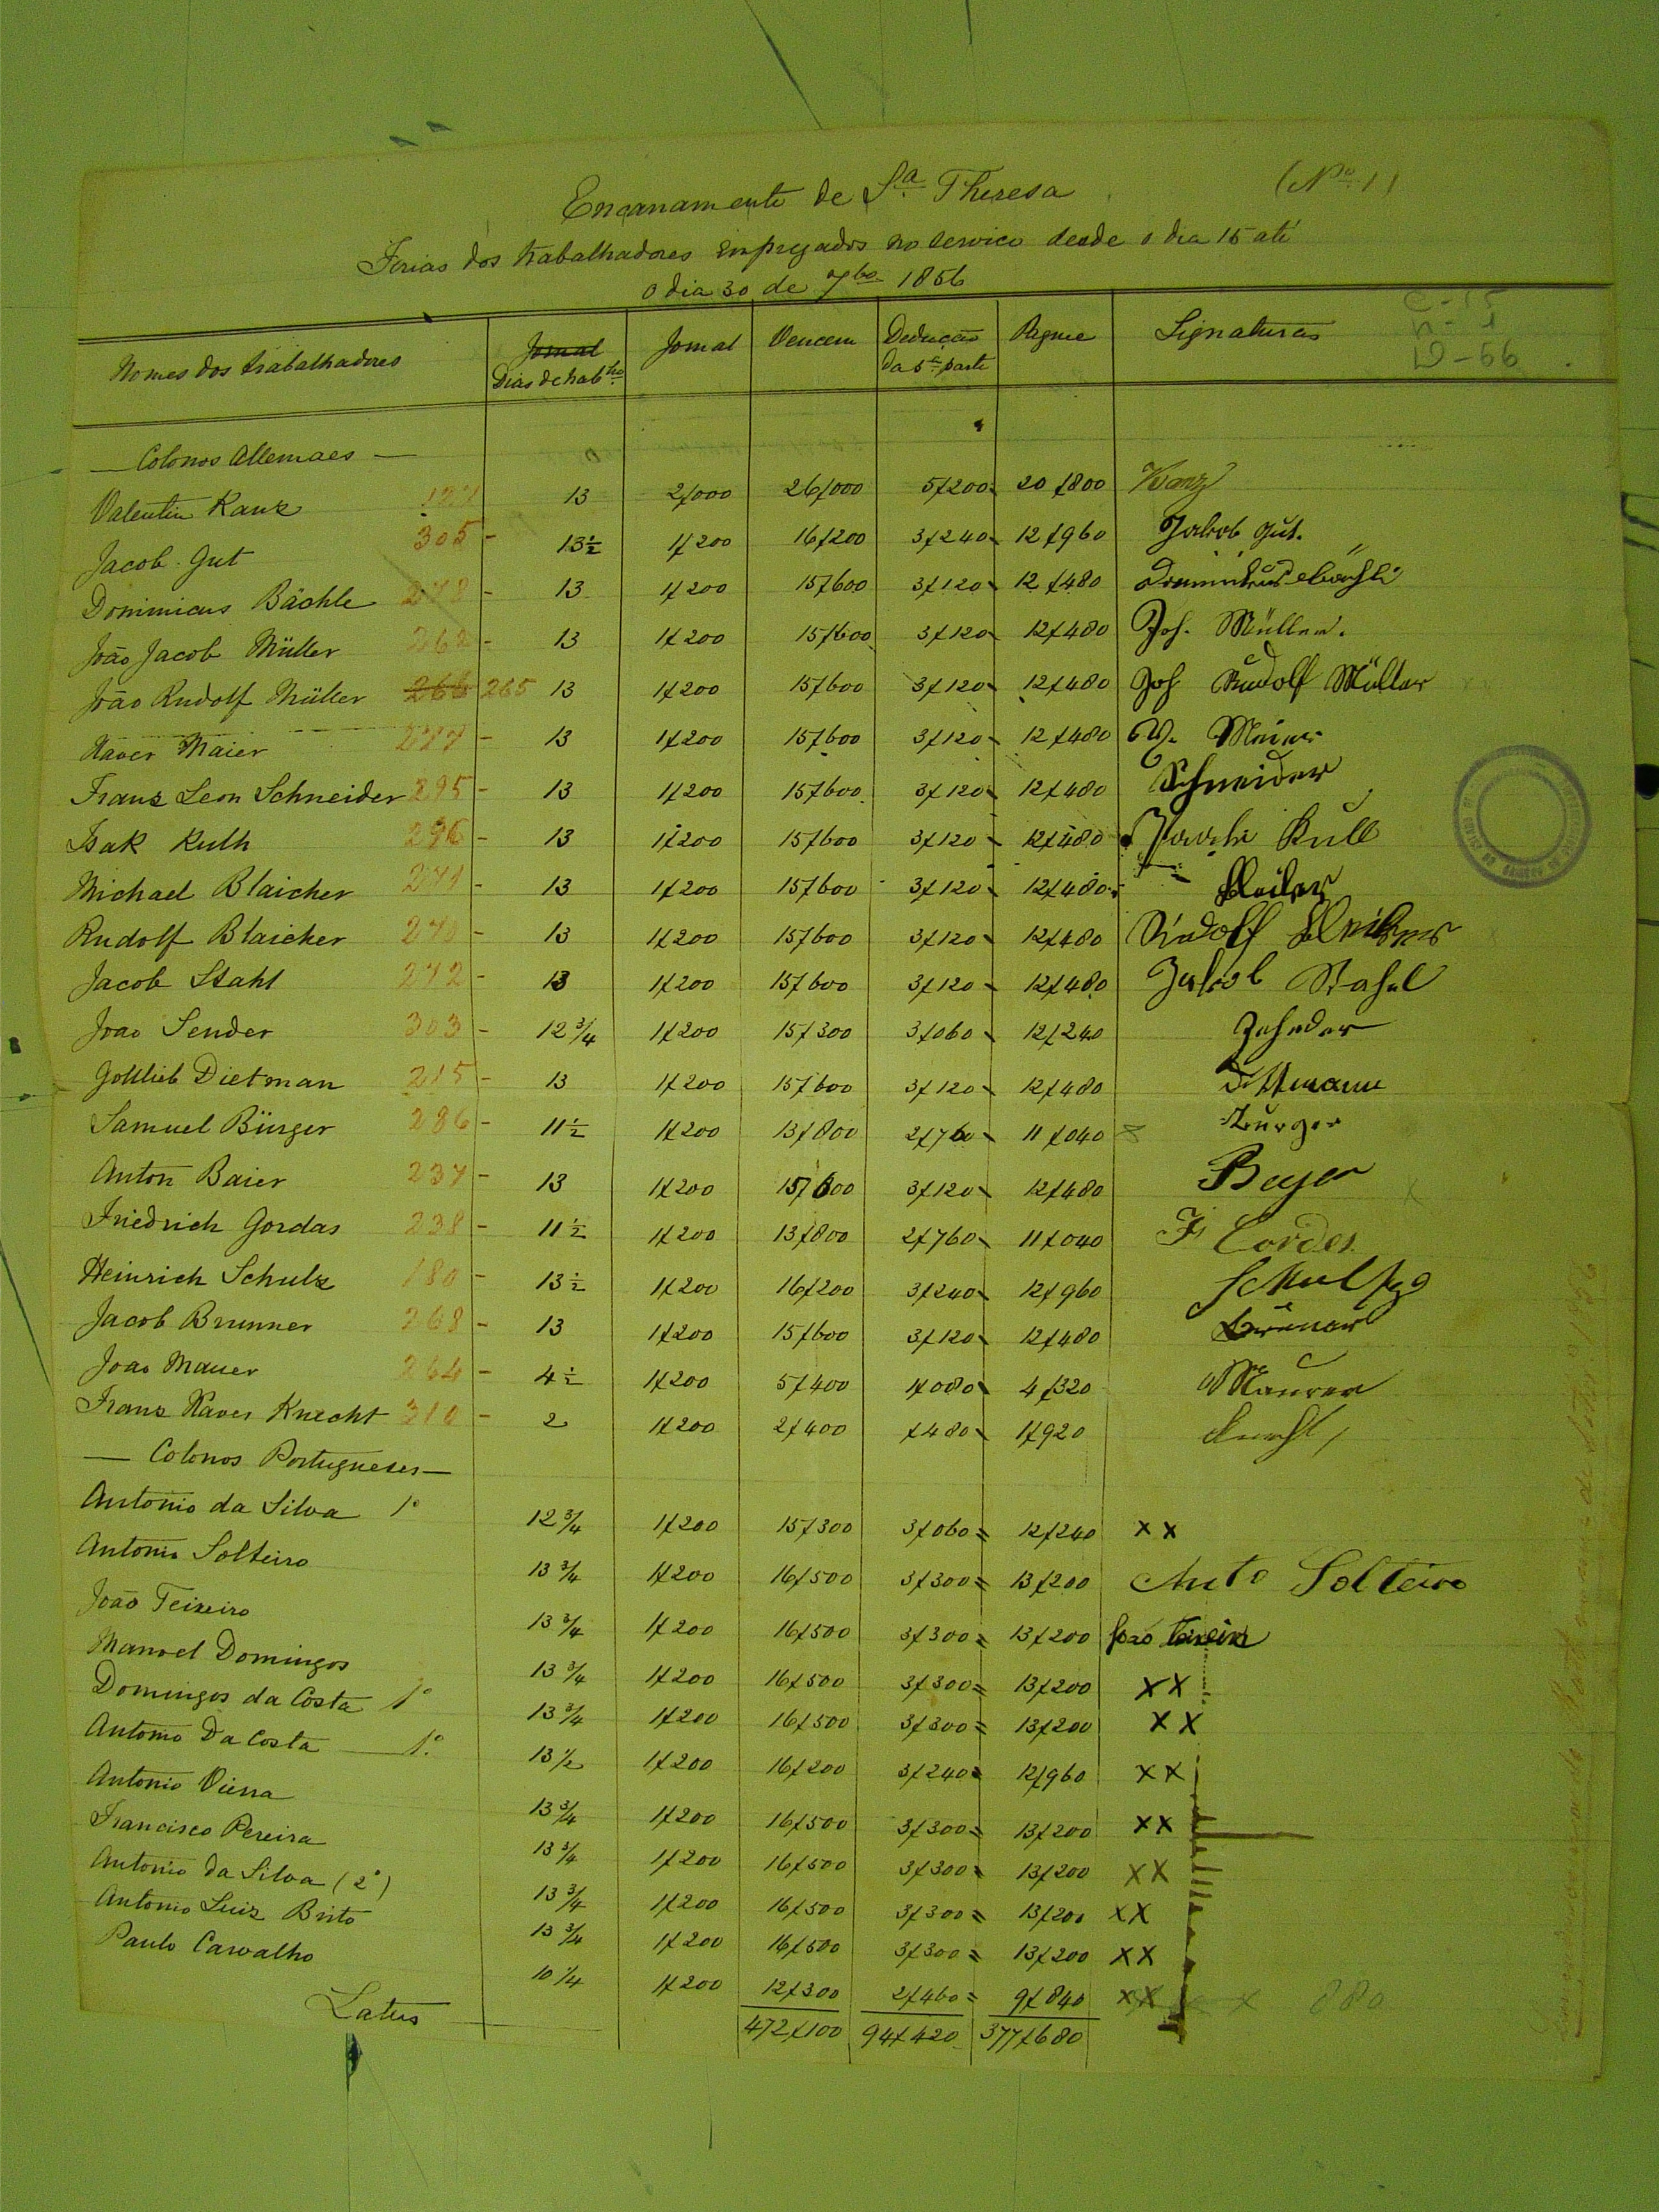 (Nº 1)
Encanamento de Sª Theresa
Ferias dos trabalhadores empregados no servico desde o dia 15 até
o dia 30 de 7bro 1856
Nomes dos trabalhadores Jornal Dias de trabho Jornal Vencem Deducção da 5ª parte Pagme Signaturas
C-15
D-66
— Colonos Allemaes —
Valentin Kanz 13 2$000 26$000 5$200 20$800 Kanz
Jacob Gut 305 - 13½ 1$200 16$200 3$240 12$960 Jakob Gut.
Dominicus Bächle 278 - 13 1$200 15$600 3$120 12$480 Dominikus Bächle
João Jacob Müller 262 - 13 1$200 15$600 3$120 12$480 Joh. Müller.
João Rudolf Müller 266 265 13 1$200 15$600 3$120 12$480 Joh Rudolf Müller
Xaver Maier 277 - 13 1$200 15$600 3$120 12$480 Meier
Franz Leon Schneider 295 - 13 1$200 15$600 3$120 12$480 Schneider
Isak Kuth 296 - 13 1$200 15$600 3$120 12$480 Kull
Michael Blaicher 271 - 13 1$200 15$600 3$120 12$480
Rudolf Blaicher 270 - 13 1$200 15$600 3$120 12$480 Rudolf
Jacob Stahl 272 - 13 1$200 15$600 3$120 12$480 Jakob Stahel
Joao Sender 303 - 12¾ 1$200 15$300 3$060 12$240 Zehnder
Gottlieb Dietman 215 - 13 1$200 15$600 3$120 12$480 Dittmann
Samuel Bürger 286 - 11½ 1$200 13$800 2$760 11$040 Burger
Anton Baier 237 - 13 1$200 15$600 3$120 12$480 Beyer
Friedrich Gordas 238 - 11½ 1$200 13$800 2$760 11$040 F Cordes
Heinrich Schulz 180 - 13½ 1$200 16$200 3$240 12$960 Schulz
Jacob Brunner 268 - 13 1$200 15$600 3$120 12$480
Joao Mauer 264 - 4½ 1$200 5$400 1$080 4$320 Maurer
Franz Xaver Knecht 310 - 2 1$200 2$400 $480 1$920 Knecht
— Colonos Portugueses —
Antonio da Silva 1º 12¾ 1$200 15$300 3$060 = 12$240 XX
Antonio Solteiro 13¾ 1$200 16$500 3$300 = 13$200 Anto Solteiro
João Teixeiro 13¾ 1$200 16$500 3$300 = 13$200 João
Manoel Domingos 13¾ 1$200 16$500 3$300 = 13$200 XX
Domingos da Costa 1º 13¾ 1$200 16$500 3$300 = 13$200 XX
Antonio Da Costa 1º 13½ 1$200 16$200 3$240 = 12$960 XX
Antonio Vieira 13¾ 1$200 16$500 3$300 = 13$200 XX
Francisco Pereira 13¾ 1$200 16$500 3$300 = 13$200 XX
Antonio da Silva (2º) 13¾ 1$200 16$500 3$300 = 13$200 XX
Antonio Luiz Brito 13¾ 1$200 16$500 3$300 = 13$200 XX
Paulo Carvalho 10¼ 1$200 12$300 2$460 = 9$840 XX 880
Latus 472$100 94$420 377$680